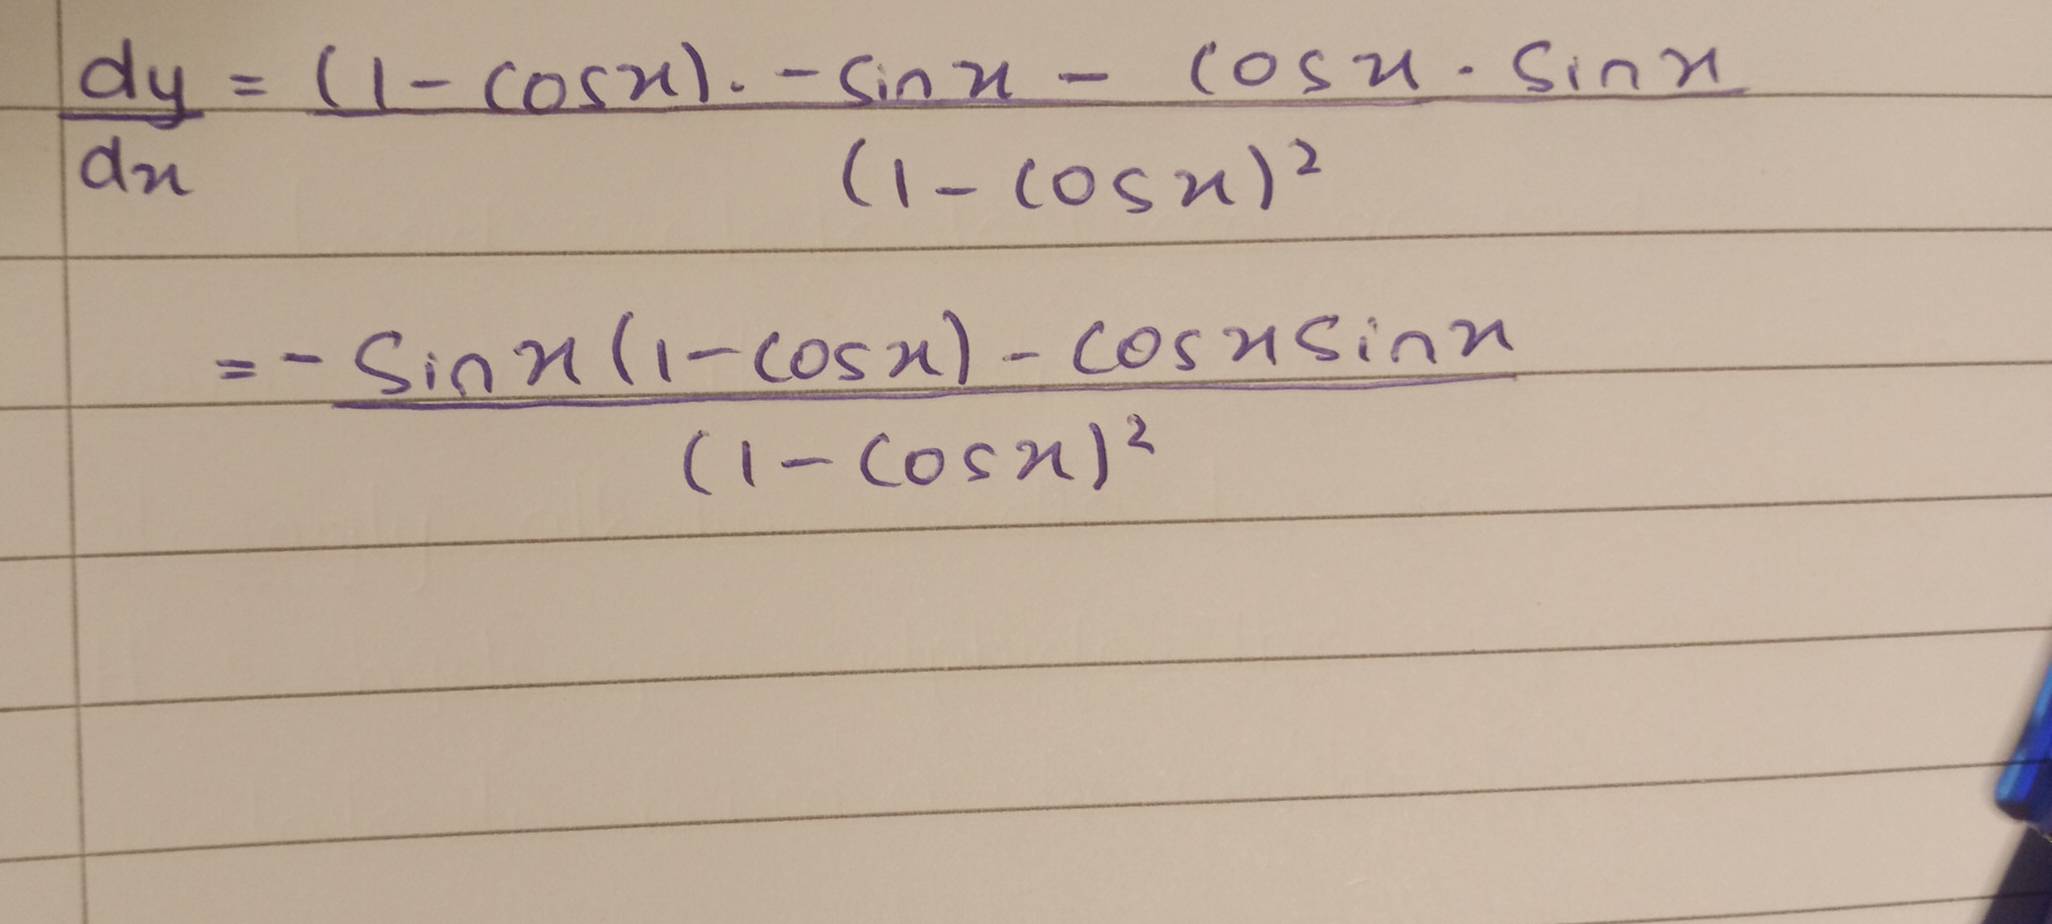 dy/dx = (1-cosx).-sinx - cosx.sinx / (1-cosx)²
= - sinx(1-cosx) - cosxsinx / (1-cosx)²